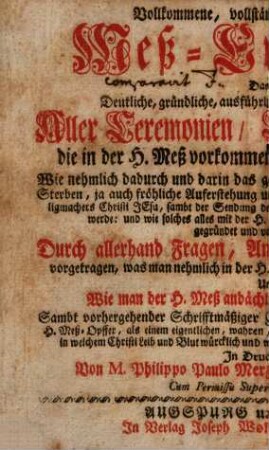 Vollkommene, vollstän
Meß-E
comparavit F.
Das
Deutliche, gründliche, ausführl
Aller Ceremonien /
die in der H. Meß vorkomme
Wie nehmlich dadurch und darin das g
Sterben, ja auch fröhliche Auferstehung u
ligmachers Christi JEsu, sambt der Sendung de
werde: und wie solches alles mit der H.
gegründet und
Durch allerhand Fragen, An
vorgetragen, was man nehmlich in der H.
Un
Wie man der H. Meß andächt
Sambt vorhergehender Schrifftmäßiger
H. Meß-Opffer, als einem eigentlichen, wahren
in welchem Christi Leib und Blut würcklich und w
In Druc
Von M. Philippo Paulo Merz
Cum Permissu Super
AUGSPURG u
In Verlag Joseph Wol